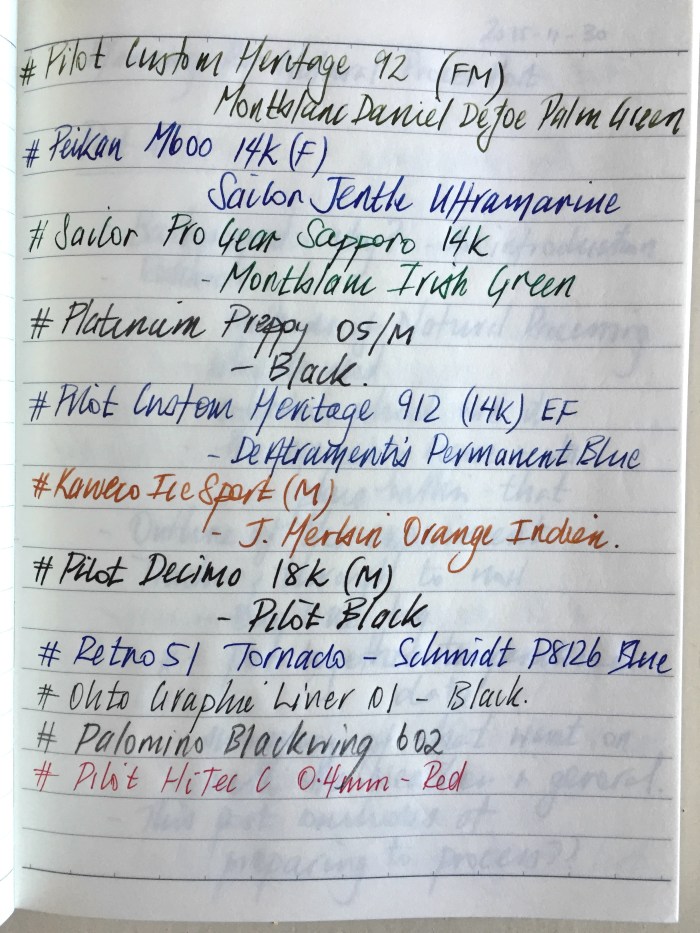 # Pilot Custom Heritage 92 (FM)
Montblanc Daniel Defoe Palm Green
# Pelikan M600 14K (F)
Sailor Jentle Ultramarine
# Sailor Pro Gear Sapporo 14K
- Montblanc Irish Green
# Platinium Preppy 05/M
- Black.
# Pilot Custom Heritage 912 (14K) EF
- DeAtramentis Permanent Blue
# Kaweco Ice Sport (M)
- J. Herbin Orange Indien.
# Pilot Decimo 18K (M)
- Pilot Black
# Retro 51 Tornado - Schmidt P8126 Blue
# Ohto Graphic Liner 01 - Black.
# Palomino Blackwing 602
# Pilot HiTec C 0.4mm - Red